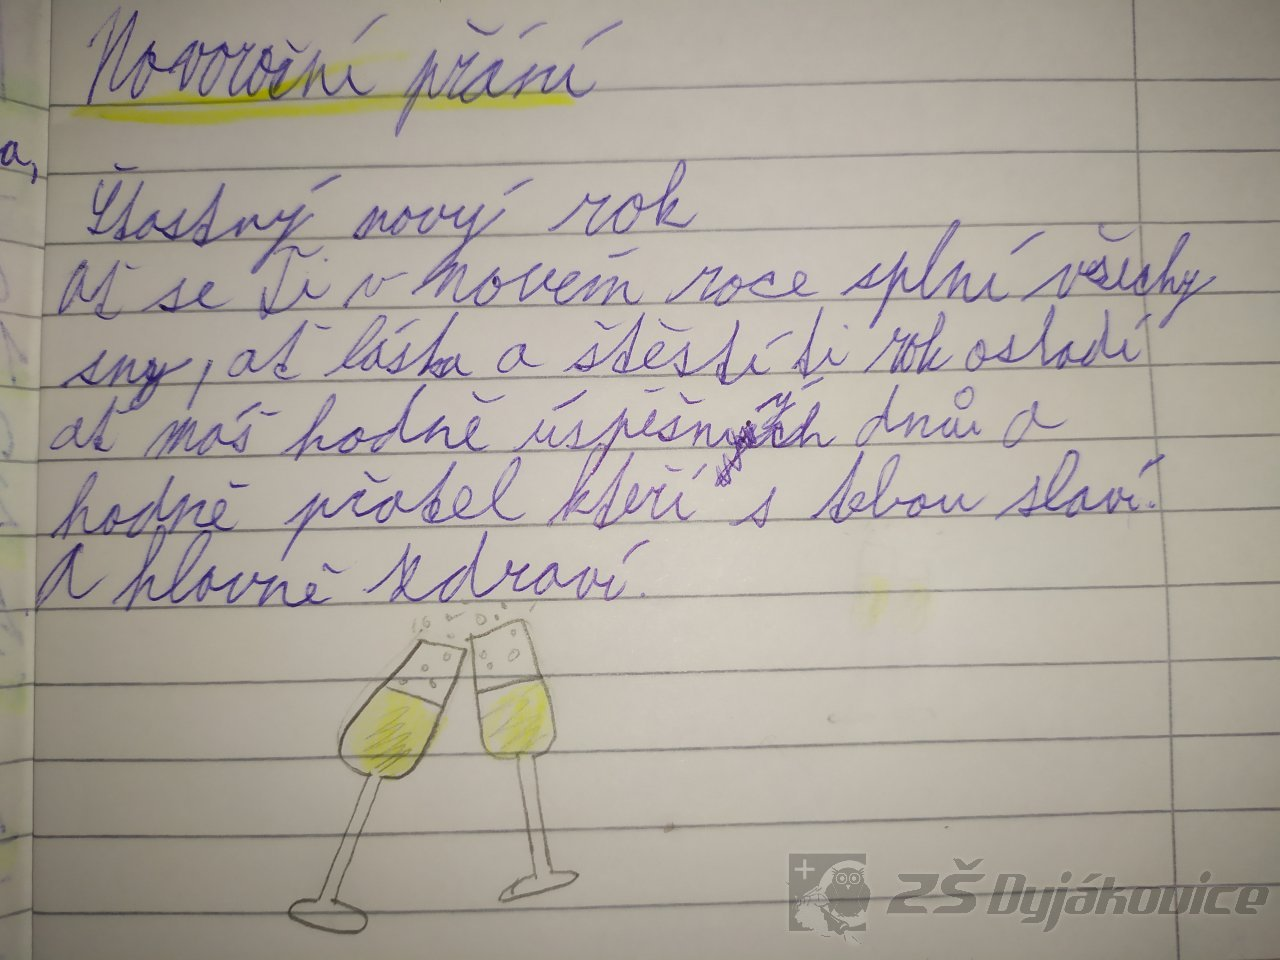 Novoroční přání
a,
Štastný nový rok
At se Ti v novém roce splní všechy
sny, at láska a štěstí ti rok osladí
at máš hodně úspěšných dnů a
hodně přatel kteří s tebou slaví.
A hlavně zdraví.
ZŠ Dyjákovice